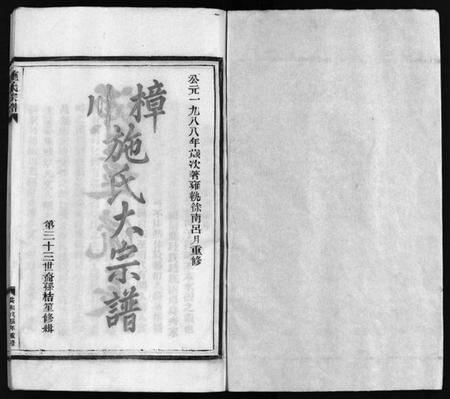 公元一九八八年歲次著雍執徐南呂月重修
樟川
施氏大宗譜
第二十三世裔孫桔笙修緝
施氏宗譜